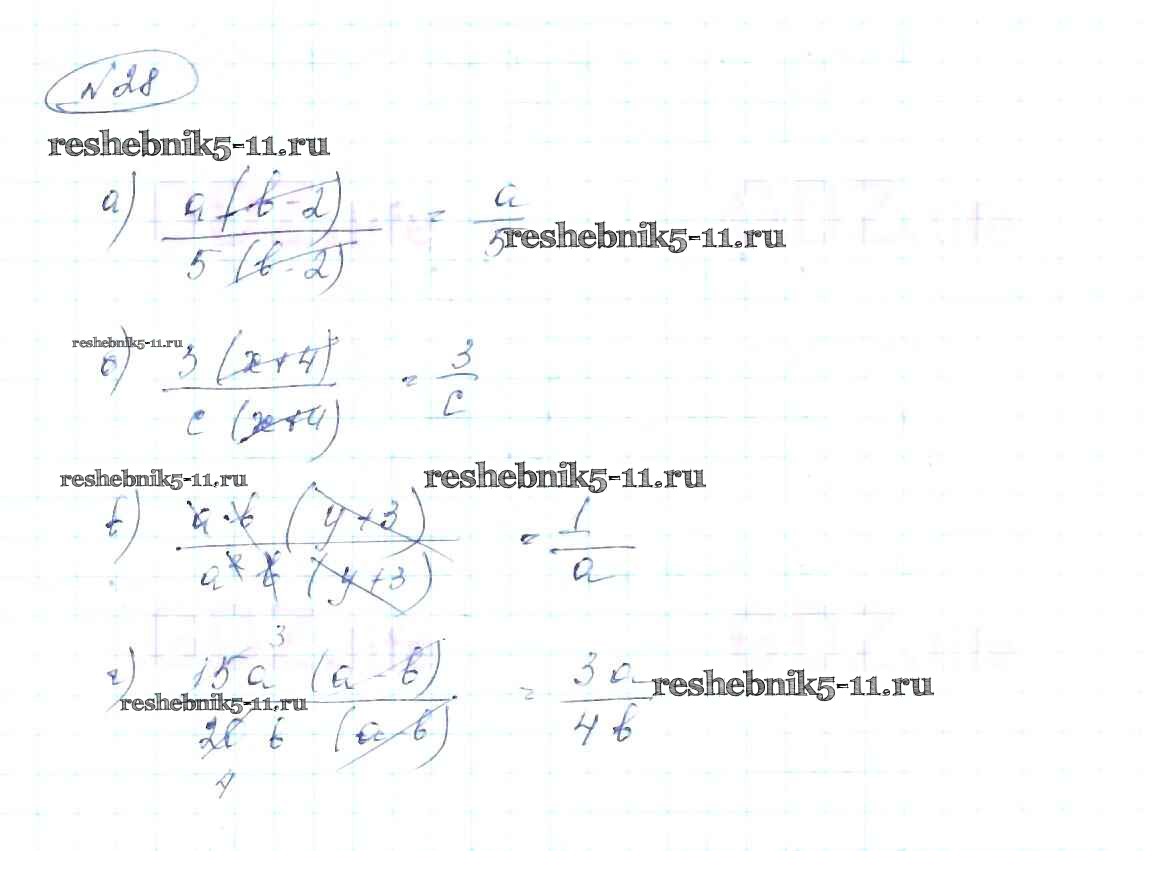 №28
reshebnik5-11.ru
а) a(b-2) / 5(b-2) = a/5
reshebnik5-11.ru
reshebnik5-11.ru
б) 3(x+4) / c(x+4) = 3/c
reshebnik5-11.ru reshebnik5-11.ru
в) a·b(y+3) / a²b(y+3) = 1/a
3
г) 15a(a-b) / 20b(a-b) = 3a/4b
reshebnik5-11.ru reshebnik5-11.ru
4